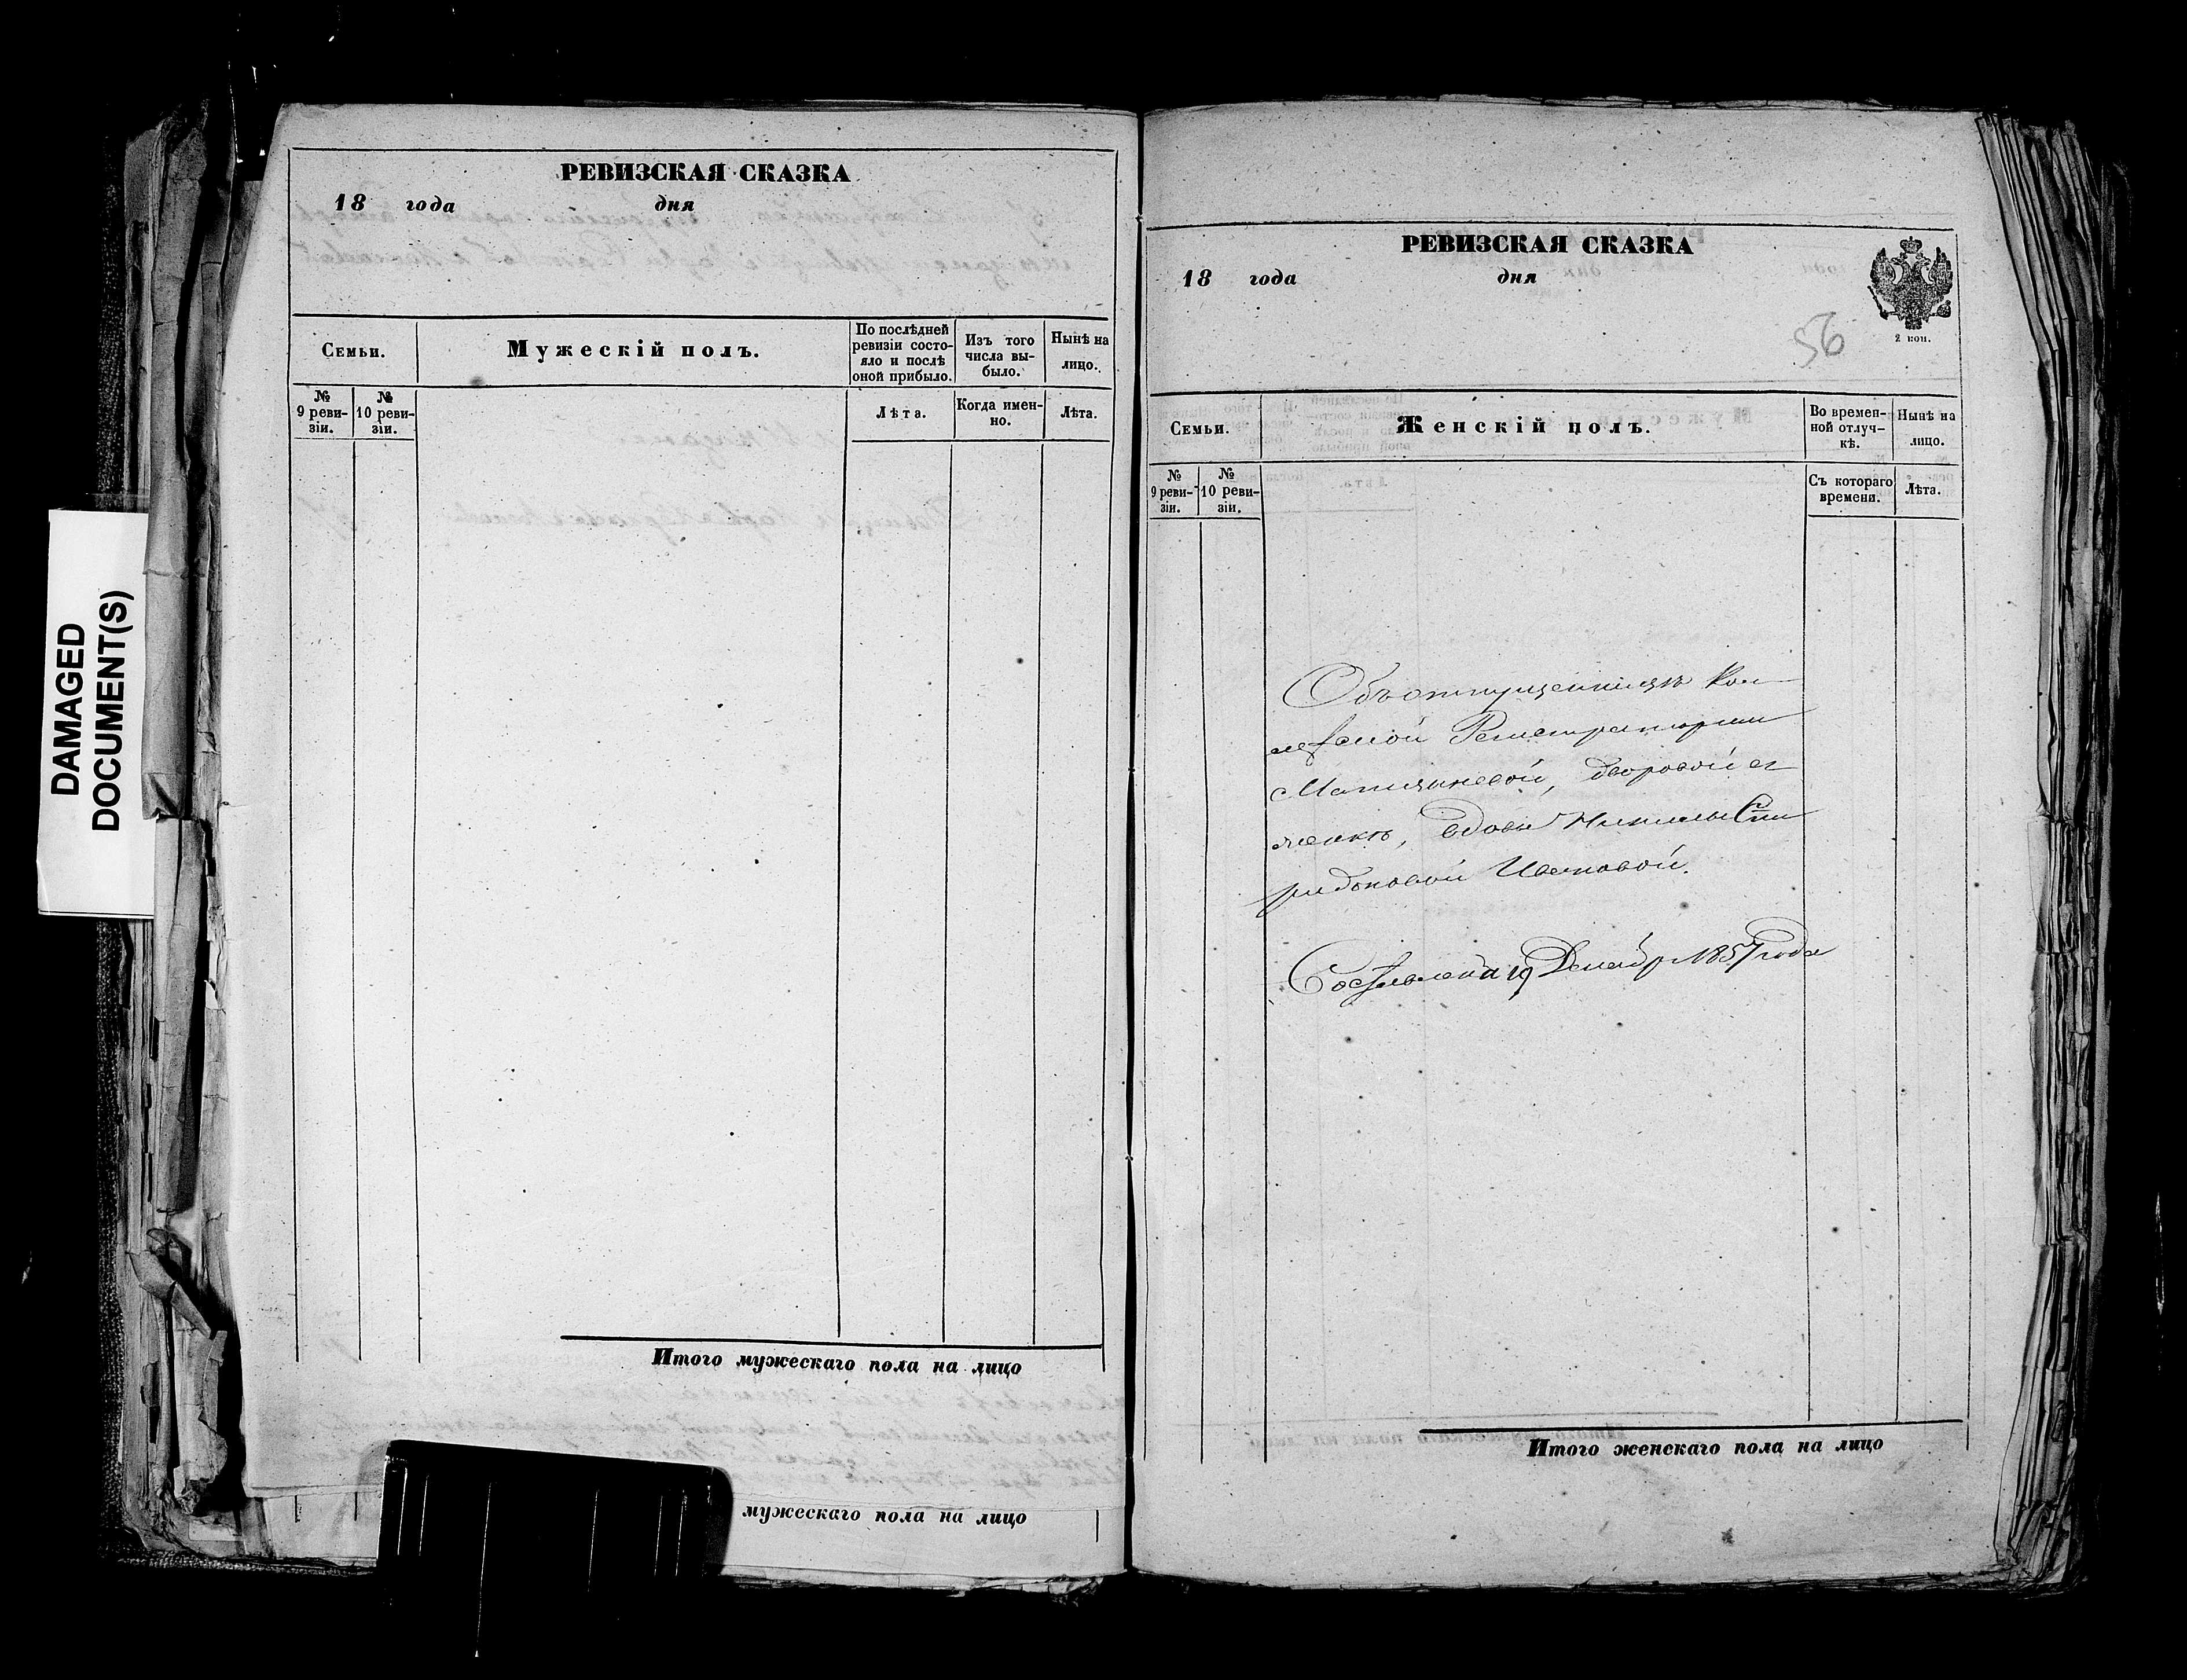 DAMAGED
DOCUMENT(S)
РЕВИЗСКАЯ СКАЗКА
18 года дня
Семьи.
Мужескій полъ.
По послѣдней
ревизіи состо-
яло и послѣ
оной прибыло.
Изъ того
числа вы-
было.
Нынѣ на
лицо.
№
9 реви-
зіи.
№
10 реви-
зіи.
Лѣта.
Когда имен-
но.
Лѣта.
Итого мужескаго пола на лицо
мужескаго пола на лицо
РЕВИЗСКАЯ СКАЗКА
18 года дня
2 коп.
56
Семьи.
Женскій полъ.
Во времен-
ной отлуч-
кѣ.
Нынѣ на
лицо.
№
9 реви-
зіи.
№
10 реви-
зіи.
Съ котораго
времени.
Лѣта.
Объ отпущенницѣ Кол-
лежской Регистраторши
дворовой
вдовы Спи
ридоновой Ивановой.
Составлена 19 Декабр 1857 года
Итого женскаго пола на лицо